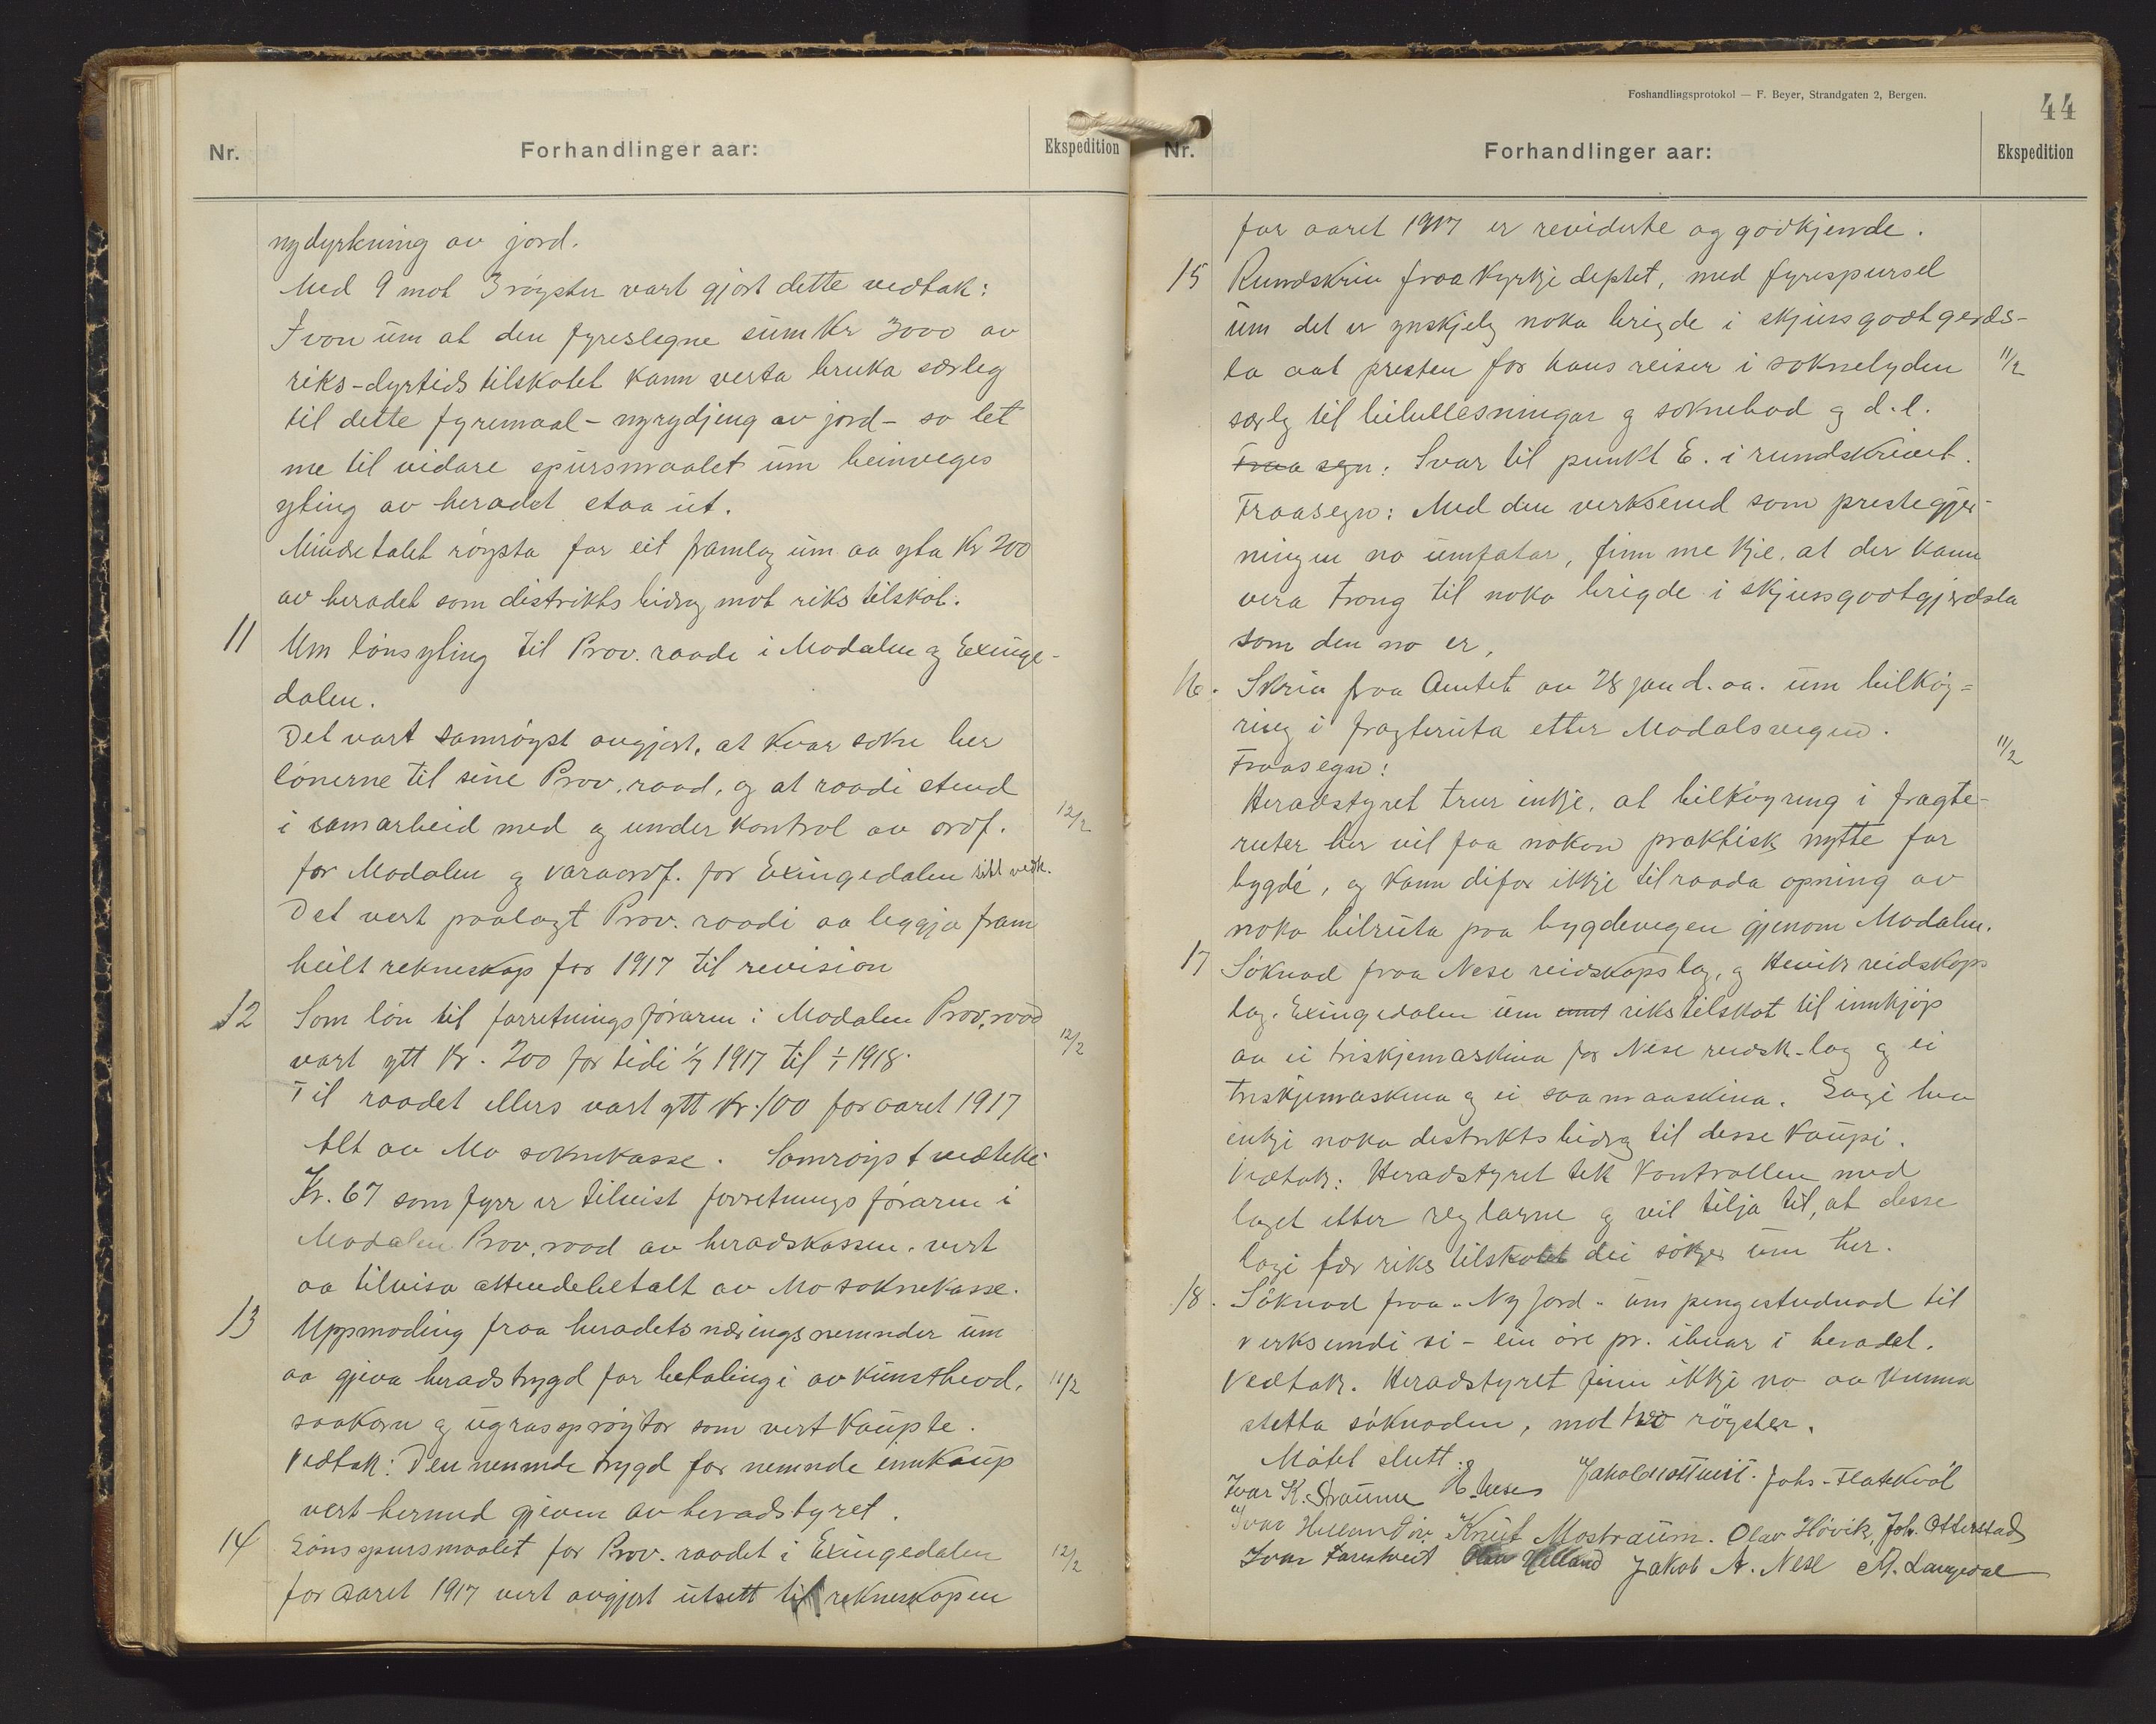 Nr.
Forhandlinger aar:
Ekspedition
nydyrkning av jord.
Med 9 mot 3 røyster vart gjort dette vedtak:
I von um at den fyreslegne sum Kr 3000 av
riks-dyrtids tilskotet kann verta bruka særleg
til dette fyremaal - nyrydjing av jord - so let
me til vidare spursmaalet um beinveges
yting av heradet staa ut.
Mindretalet røysta for eit framlag um aa yta Kr 200
av heradet som distrikts bidrag mot riks tilskot.
11 Um lønsyting til Prov. raade i Modalen og Exinge-
dalen.
Det vart samrøyst avgjort, at kvar sokn ber
lønerne til sine Prov. raad, og at raadi stend
i samarbeid med og under kontrol av ordf. 12/2
for Modalen og varaordf. for Exingedalen sitt vedk.
Det vert paalagt Prov. raadi aa leggja fram
heilt rekneskap for 1917 til revision
12 Som løn til forretningsføraren i Modalen Prov. raad
vart ytt Kr. 200 for tidi 1/7 1917 til 1/1 1918. 12/2
Til raadet ellers vart ytt Kr. 100 for aaret 1917
Alt av Mo soknekasse. Samrøyst vedteke
Kr. 67 som fyrr er tilvist forretningsføraren i
Modalen Prov. raad av heradskassen, vert
aa tilvisa attendebetalt av Mo soknekasse.
13 Uppmoding fraa heradets næringsnemnder um
aa gjeva heradstrygd for betalingi av kunsthevd, 11/2
saakorn og ugrassprøytor som vert kaupte.
Vedtak: Den nemnde trygd for nemnde innkaup
vert hermed gjeven av heradstyret.
14 Lønsspursmaalet for Prov. raadet i Exingedalen 12/2
for aaret 1917 vert avgjort utsett til rekneskapen
Foshandlingsprotokol — F. Beyer, Strandgaten 2, Bergen.
44
Nr.
Forhandlinger aar:
Ekspedition
for aaret 1917 er reviderte og godkjende.
15 Rundskriv fraa Kyrkjedeptet, med fyrespursel
um det er ynskjeleg noka brigde i skjussgodtgerds-
la aat presten for hans reiser i soknelyden 11/2
særleg til bibellesningar og soknebod og d. l.
Fraasegn: Svar til punkt E. i rundskrivet.
Fraasegn: Med den verksemd som prestegjer-
ningen no umfatar, finn me kje, at der kann
vera trong til noko brigde i skjussgodtgjerdsla
som den no er.
16. Skriv fraa Amtet av 28 jan d. aa. um bilkøy-
ring i fragteruta etter Modalsvegen.
Fraasegn: 11/2
Heradstyret trur inkje, at bilkøyring i fragte-
ruter her vil faa nokon praktisk nytte for
bygdi, og kann difor ikkje tilraada opning av
noka bilruta paa bygdevegen gjenom Modalen.
17 Søknad fraa Nese reidskapslag, og Høvik reidskaps
lag. Exingedalen um umt rikstilskot til innkjøp
av ei triskjemaskina for Nese reidsk.-lag og ei
triskjemaskina og ei saamaaskina. Lagi hev
inkje noka distriktsbidrag til desse kaupi.
Vedtak: Heradstyret tek kontrollen med
laget etter reglarne og vil tilja til, at desse
lagi fær riks tilskotet dei søkjer um her.
18. Søknad fraa "Ny Jord" um pengestudnad til
verksemdi si - ein øre pr. ibuar i heradet.
Vedtak. Heradstyret finn ikkje no aa kunna
støtta søknaden, mot two røyster.
Møtet slutt.
Ivar K. Straume E. Nese Jakob Joh's Flatekvål
Ivar Helland Knut Mostraum. Olav Høvik, Joh. Otterstad
Ivar Farestveit Olav Helland Jakob A. Nese M. Langedal